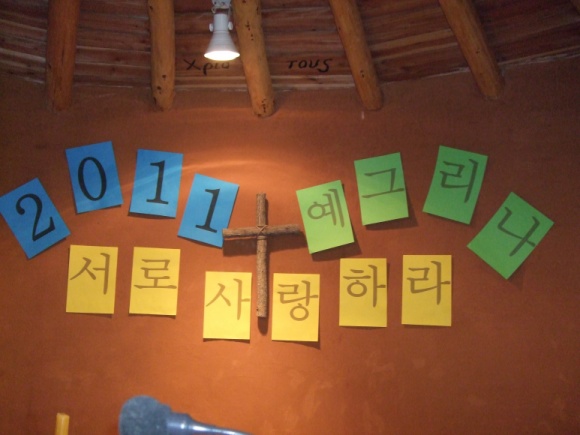 2011 예그리나
서로 사랑하라